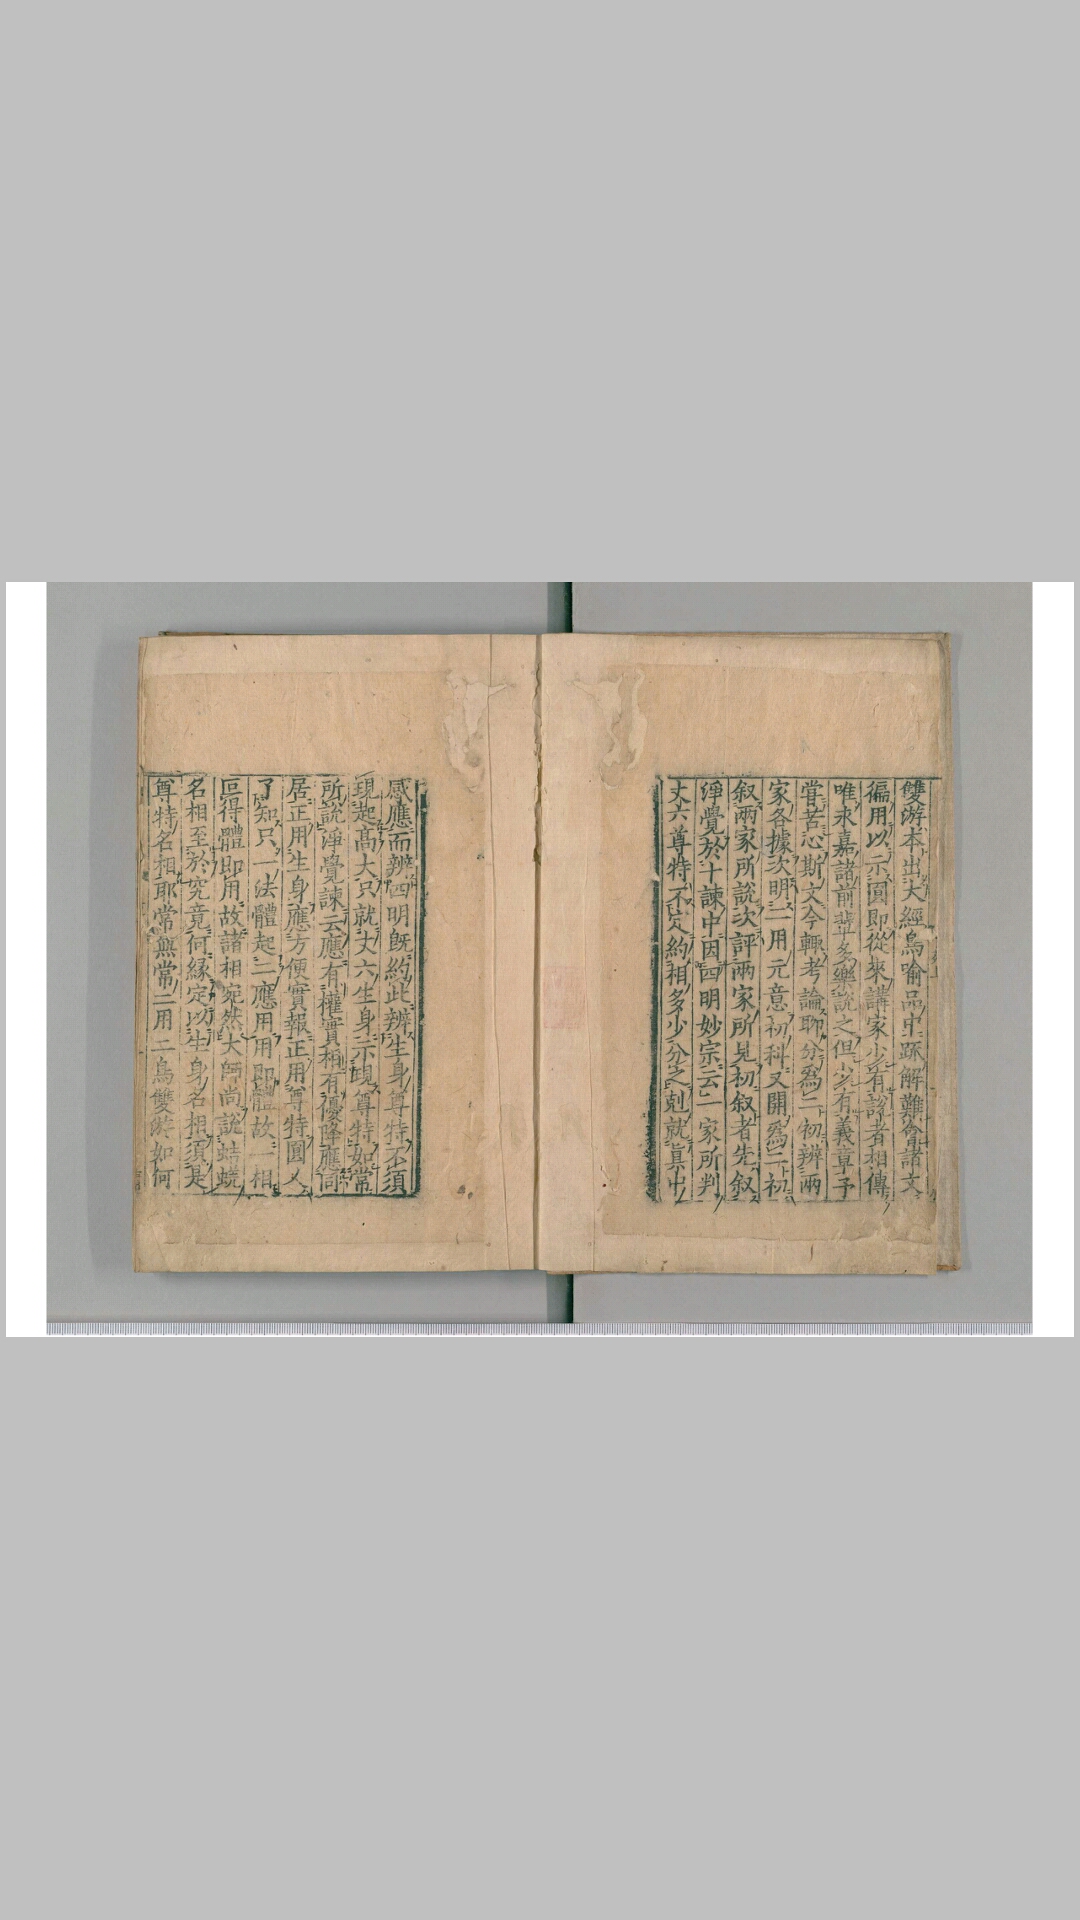 雙游本出大經鳥喻品中䟽解難㑹諸文
徧用以示圓即從來講家少有說者相傳
唯永嘉諸前輩多樂說之但少有義章予
甞苦心斯文今輙考論聊分爲二初辨兩
家各據次明二用元意初科又開爲二初
叙兩家所說次評兩家所見初叙者先叙
淨覺於十諫中因四明妙宗云二家所判
丈六尊特不定約相多少分之剋就眞中
感應而辨四明旣約此辨生身尊特不須
現起高大只就丈六生身示現尊特如常
所說淨覺諫云應有權實相有優降應同
居正用生身應方便實報正用尊特圓人
了知只一法體起二應用用即體故一相
叵得體即用故諸相宛然大師尚說蛣蜣
名相至於究竟何緣定以生身名相須是
尊特名相耶常無常二用二鳥雙游如何